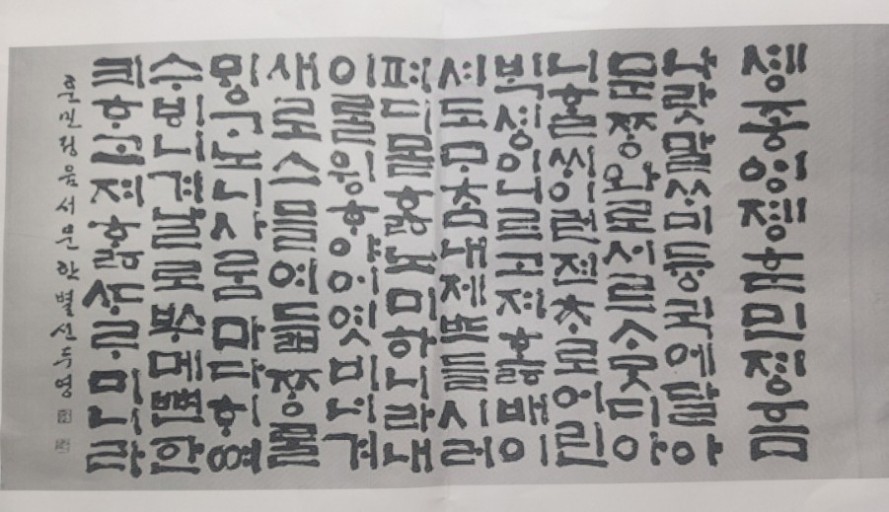 솅종엉졩훈민졍ᅙᅳᆷ
나랏말ᄊᆞ미듕귁에달아
문ᄍᆞᆼ와로서르ᄉᆞᄆᆞᆺ디아
니ᄒᆞᆯᄊᆡ이런젼ᄎᆞ로어린
ᄇᆡᆨ셩이니르고져호ᇙ배이
셔도ᄆᆞᄎᆞᆷ내제ᄠᅳ들시러
펴디몯ᄒᆞᇙ노미하니라내
이ᄅᆞᆯ윙ᄒᆞ야어엿비너겨
새로스믈여듧ᄍᆞᆼᄅᆞᆯ
ᄆᆡᇰᄀᆞ노니사ᄅᆞᆷ마다ᄒᆡᅇᅧ
수ᄫᅵ니겨날로ᄡᅮ메뼌한
킈ᄒᆞ고져ᄒᆞᇙᄯᆞᄅᆞ미니라
훈민정음서문한별신두영